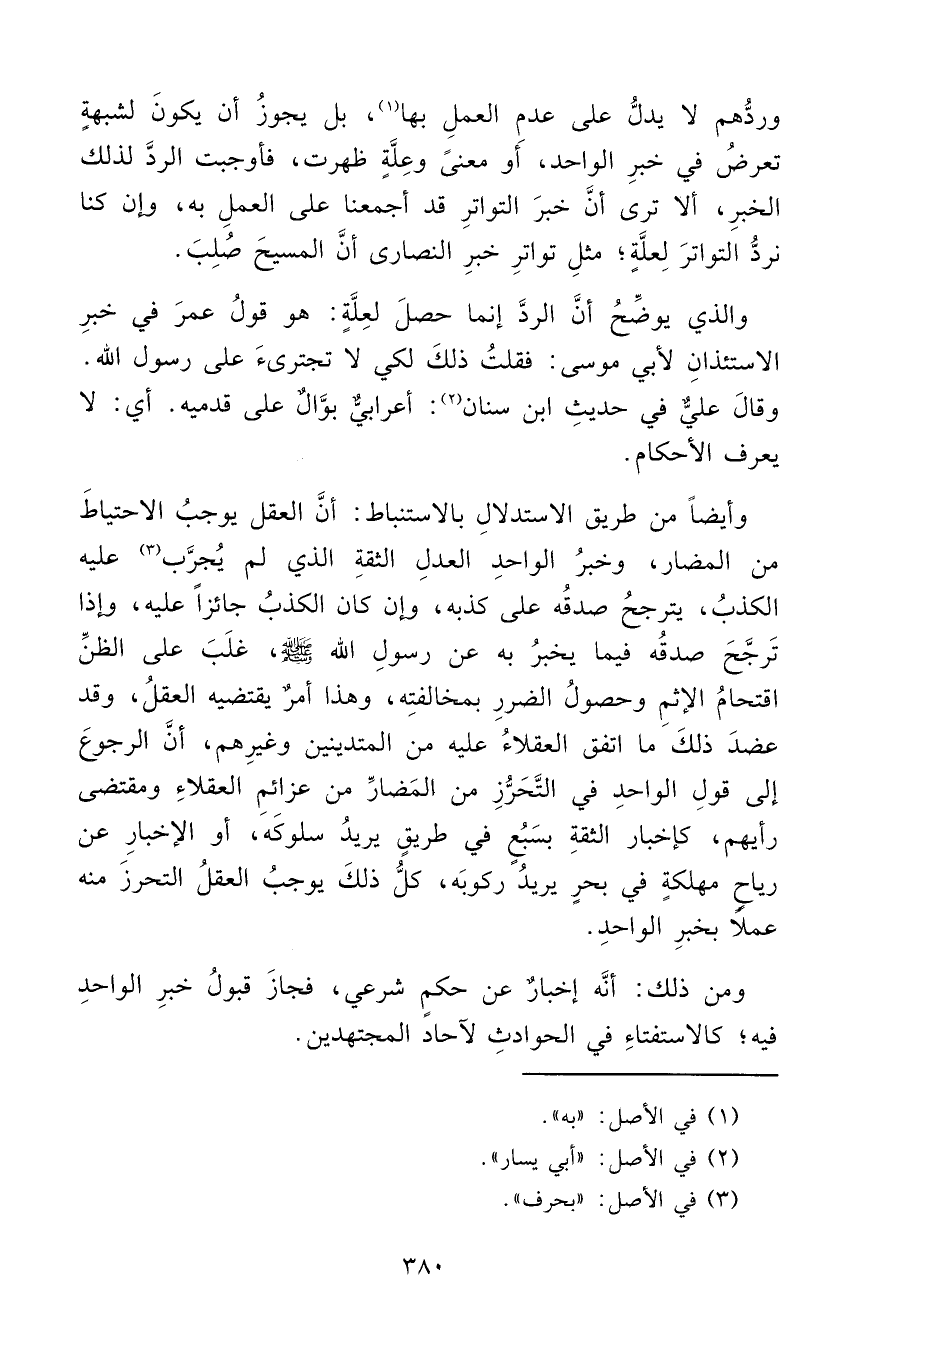 وردُّهم لا يدلُّ على عدمِ العملِ بها(١)، بل يجوزُ أن يكونَ لشبهةٍ
تعرضُ في خبرِ الواحد، أو معنىً وعِلَّةٍ ظهرت، فأوجبت الردَّ لذلك
الخبرِ، ألا ترى أنَّ خبرَ التواترِ قد أجمعنا على العملِ به، وإن كنا
نردُّ التواترَ لِعلَّةٍ؛ مثلِ تواترِ خبرِ النصارى أنَّ المسيحَ صُلِبَ.
والذي يوضِّحُ أنَّ الردَّ إنما حصلَ لعِلَّةٍ: هو قولُ عمرَ في خبرِ
الاستئذانِ لأبي موسى: فقلتُ ذلكَ لكي لا تجترىءَ على رسول الله.
وقالَ عليٌّ في حديثِ ابن سنان(٢): أعرابيٌّ بوَّالٌ على قدميه. أي: لا
يعرف الأحكام.
وأيضاً من طريق الاستدلالِ بالاستنباط: أنَّ العقل يوجبُ الاحتياطَ
من المضار، وخبرُ الواحدِ العدلِ الثقةِ الذي لم يُجرَّب(٣) عليه
الكذبُ، يترجحُ صدقُه على كذبه، وإن كان الكذبُ جائزاً عليه، وإذا
تَرجَّحَ صدقُه فيما يخبرُ به عن رسولِ الله ﷺ، غلَبَ على الظنِّ
اقتحامُ الإثمِ وحصولُ الضررِ بمخالفتِه، وهذا أمرٌ يقتضيه العقلُ، وقد
عضدَ ذلكَ ما اتفق العقلاءُ عليه من المتدينين وغيرِهم، أنَّ الرجوعَ
إلى قولِ الواحدِ في التَّحَرُّزِ من المَضارِّ من عزائمِ العقلاءِ ومقتضى
رأيهم، كإخبار الثقةِ بسَبُعٍ في طريقٍ يريدُ سلوكَه، أو الإخبارِ عن
رياحٍ مهلكةٍ في بحرٍ يريدُ ركوبَه، كلُّ ذلكَ يوجبُ العقلُ التحرزَ منه
عملًا بخبرِ الواحدِ.
ومن ذلك: أنَّه إخبارٌ عن حكمٍ شرعي، فجازَ قبولُ خبرِ الواحدِ
فيه؛ كالاستفتاءِ في الحوادثِ لآحاد المجتهدين.
(١) في الأصل: «به».
(٢) في الأصل: «أبي يسار».
(٣) في الأصل: «بحرف».
٣٨٠